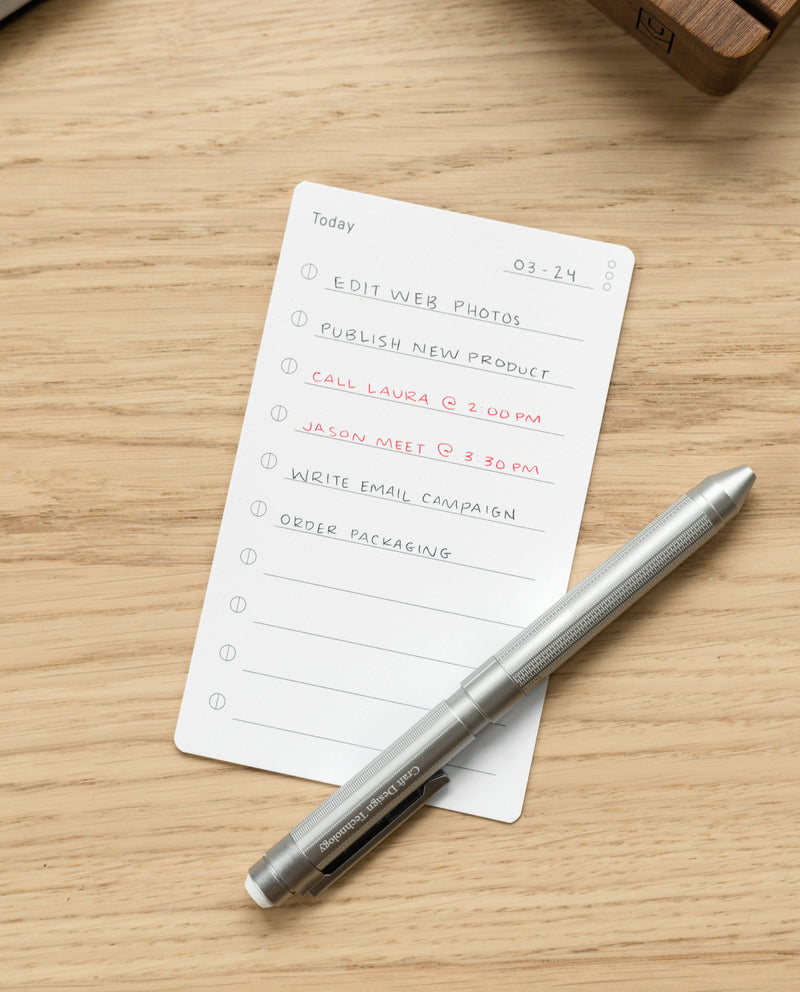 Today
03-24
EDIT WEB PHOTOS
PUBLISH NEW PRODUCT
CALL LAURA @ 2:00 PM
JASON MEET @ 3:30 PM
WRITE EMAIL CAMPAIGN
ORDER PACKAGING
Craft Design Technology